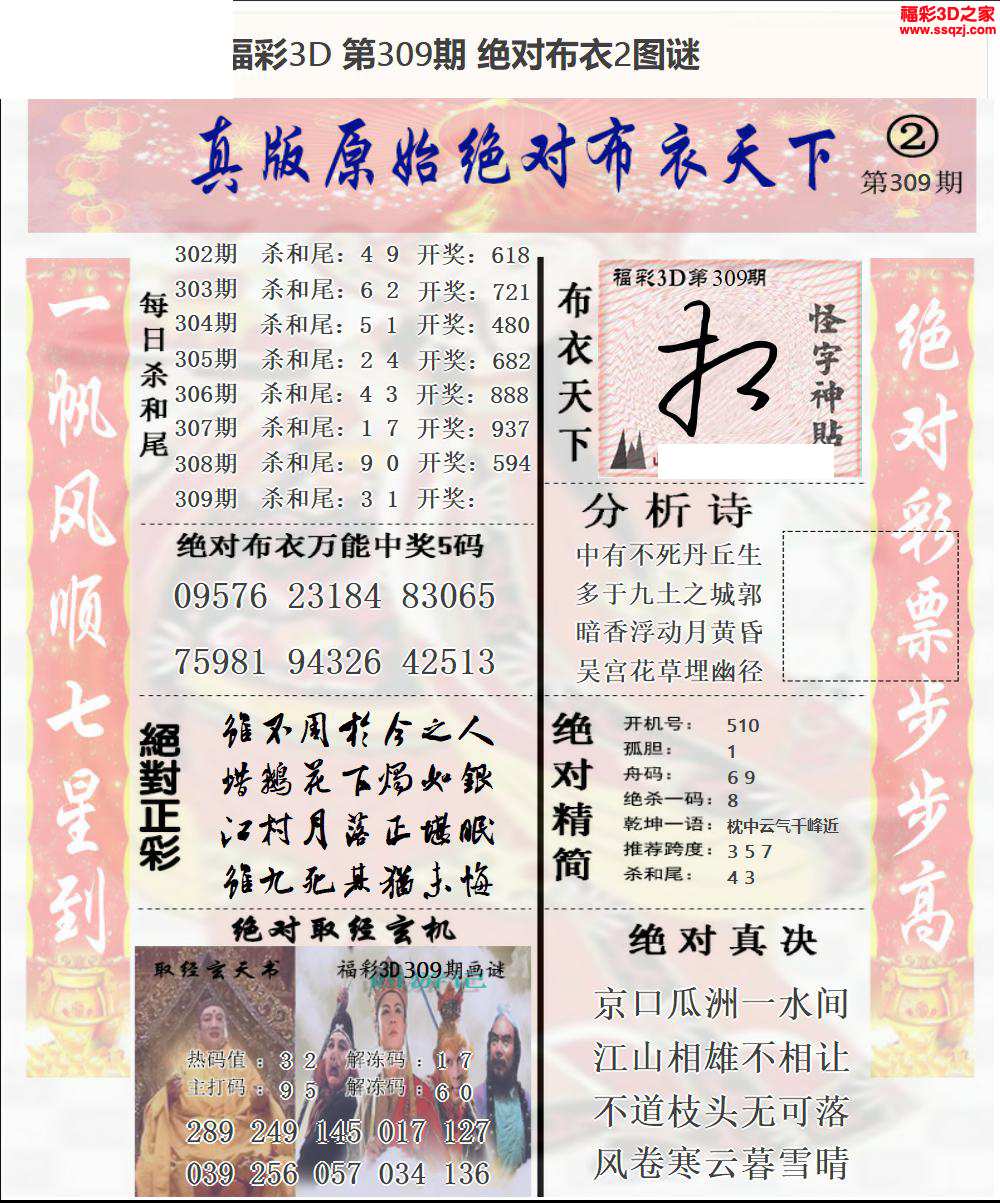 福彩3D之家
www.ssqzj.com
福彩3D 第309期 绝对布衣2图谜
真版原始绝对布衣天下
②
第309期
一帆风顺七星到
每日杀和尾
302期 杀和尾：4 9 开奖：618
303期 杀和尾：6 2 开奖：721
304期 杀和尾：5 1 开奖：480
305期 杀和尾：2 4 开奖：682
306期 杀和尾：4 3 开奖：888
307期 杀和尾：1 7 开奖：937
308期 杀和尾：9 0 开奖：594
309期 杀和尾：3 1 开奖：
绝对布衣万能中奖5码
09576 23184 83065
75981 94326 42513
絕對正彩
雖不周於今之人
蜡鹅花下烛如银
江村月落正堪眠
雖九死其猶未悔
绝对取经玄机
取经玄天书
福彩3D309期画谜
热码值：3 2 解冻码：1 7
主打码：9 5 解冻码：6 0
289 249 145 017 127
039 256 057 034 136
布衣天下
福彩3D第309期
怪字神貼
分析诗
中有不死丹丘生
多于九土之城郭
暗香浮动月黄昏
吴宫花草埋幽径
绝对精简
开机号：510
孤胆：1
舟码：6 9
绝杀一码：8
乾坤一语：枕中云气千峰近
推荐跨度：3 5 7
杀和尾：4 3
绝对真决
京口瓜洲一水间
江山相雄不相让
不道枝头无可落
风卷寒云暮雪晴
绝对彩票步步高